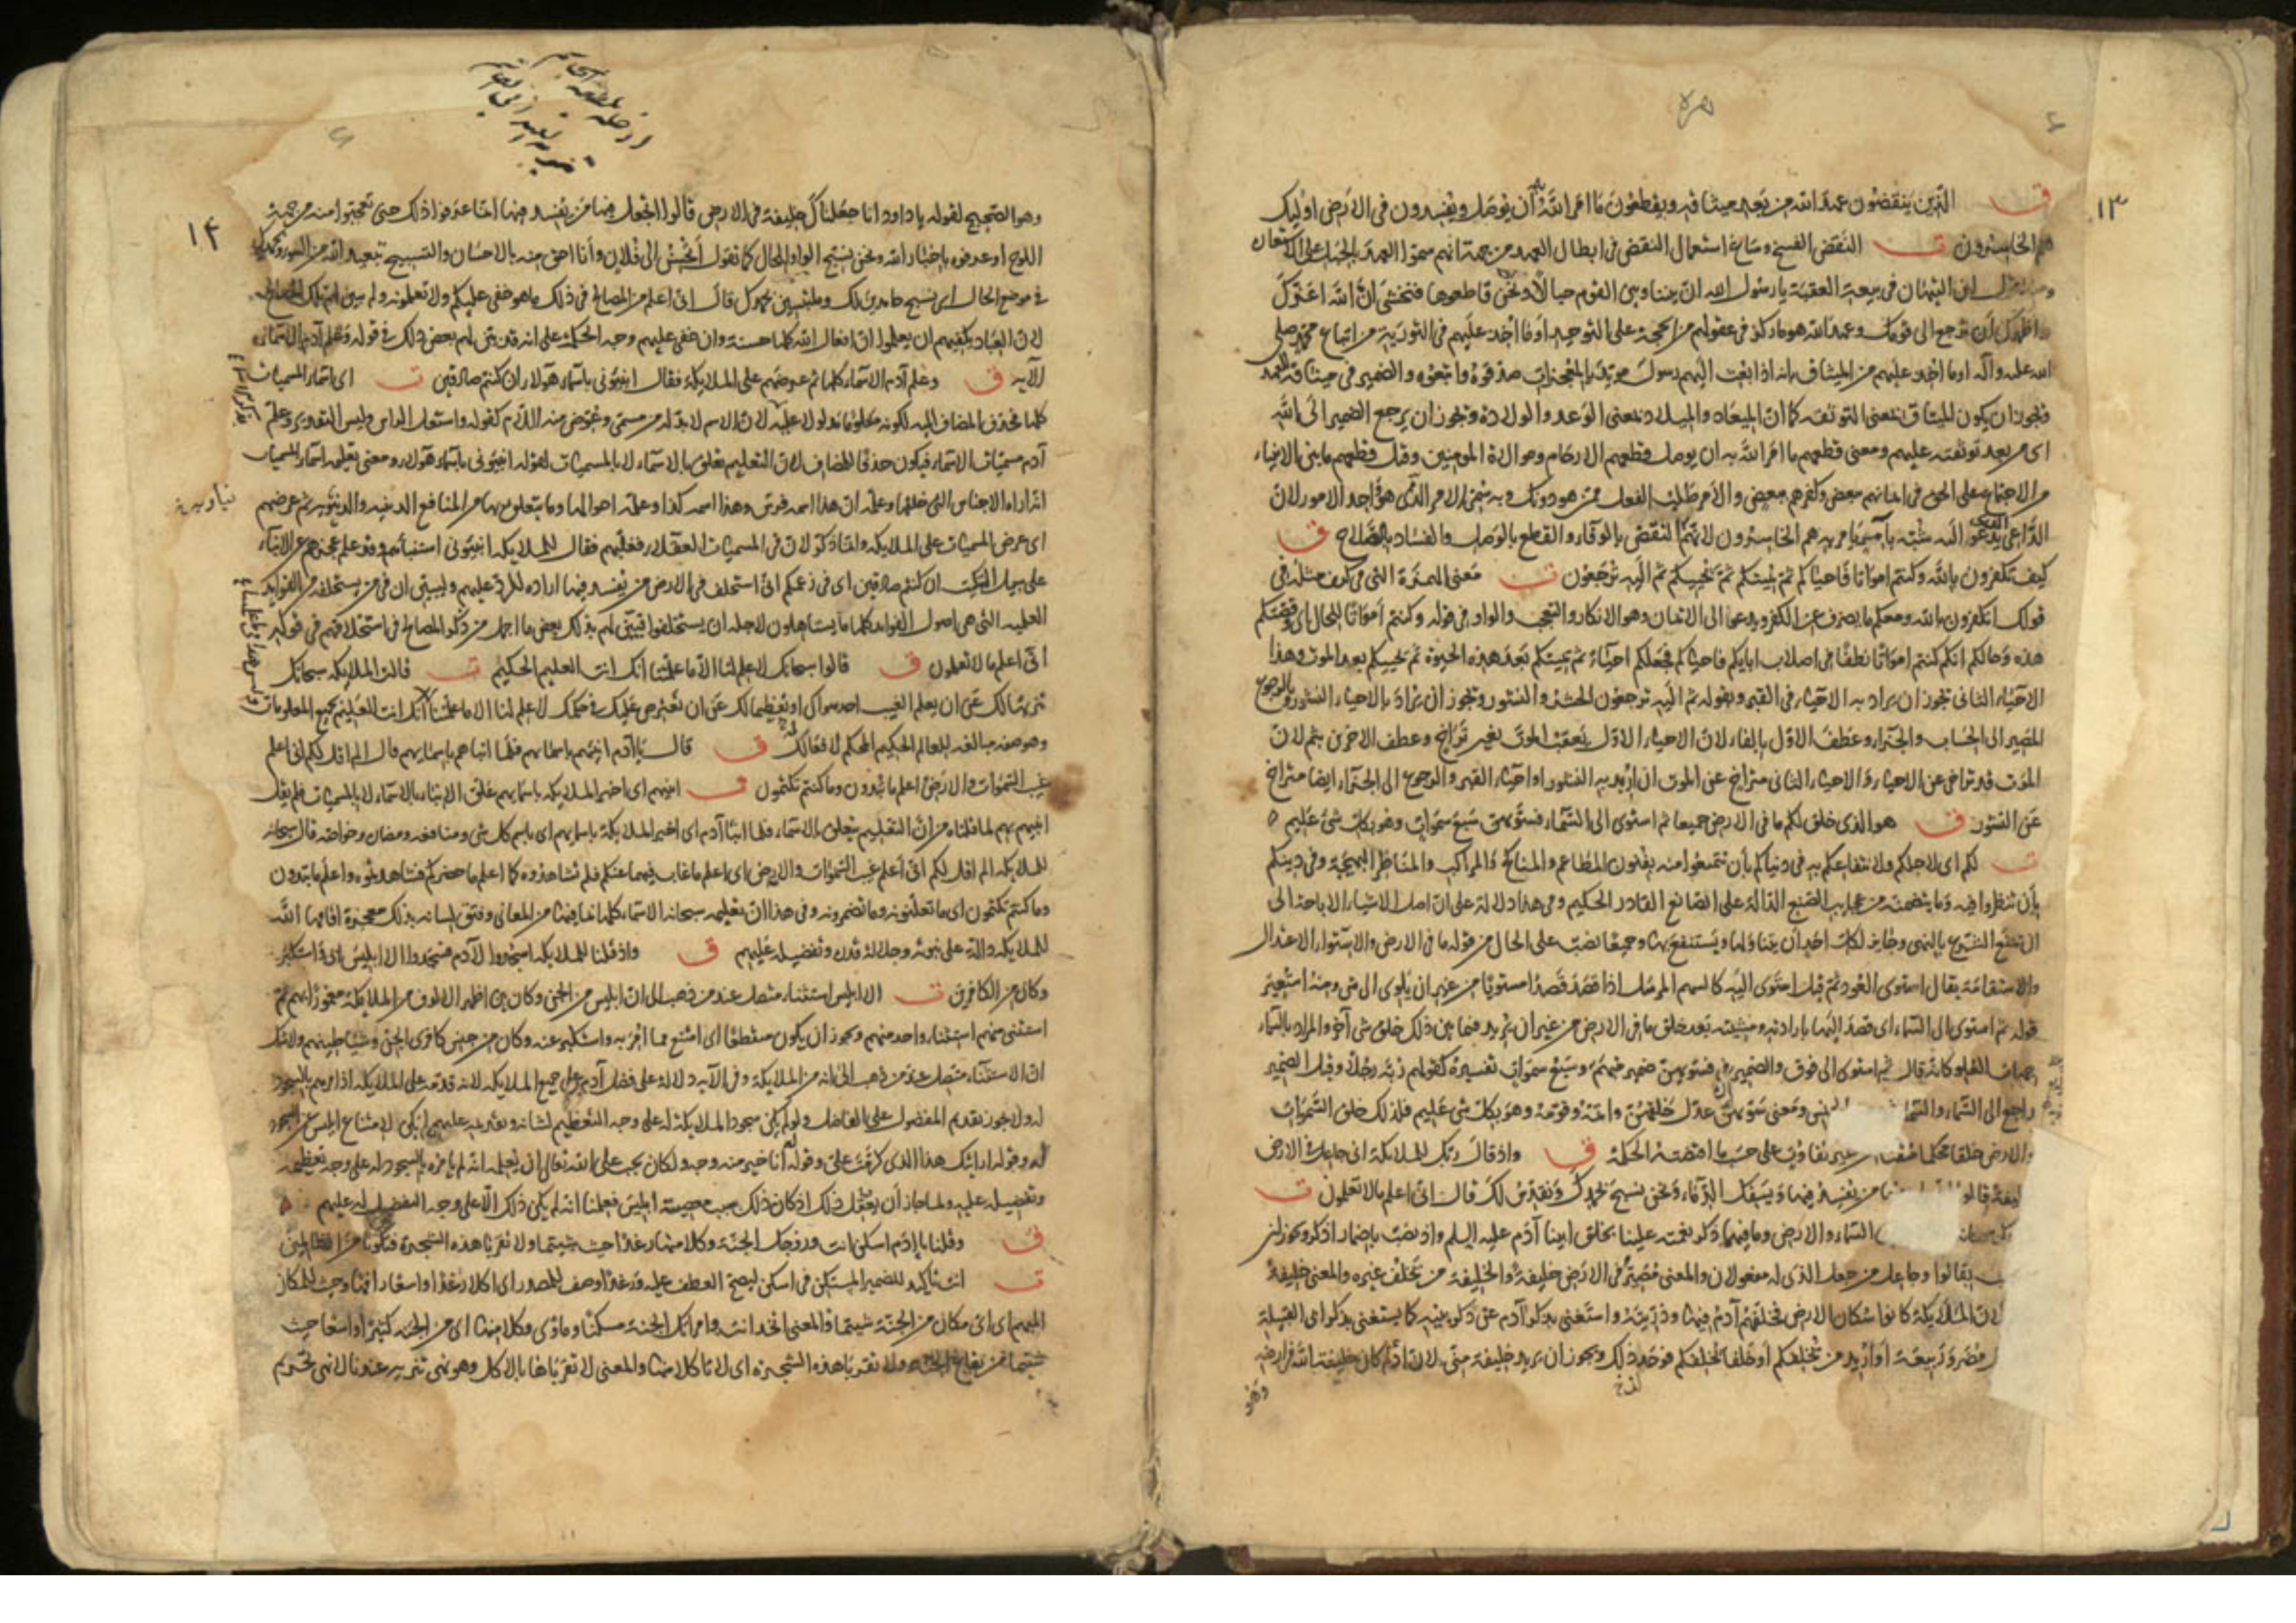 ١٣
ق الذين ينقضون عهد الله من بعد ميثاقه ويقطعون ما امر الله به أن يوصل ويفسدون في الارض اولئك
هم الخاسرون ت النقض الفسخ وساغ استعمال النقض في ابطال العهد من جهة انهم سموا العهد بالحبل على
ابن التيهان في بيعة العقبة يا رسول الله ان بيننا وبين القوم حبالا ونحن قاطعوها فنخشى ان الله اعزك
واظهرك أن ترجع الى قومك وعهد الله هو ما ركز في عقولهم من الحجة على التوحيد او ما اخذ عليهم في التورية من اتباع محمد صلى
الله عليه وآله او ما اخذ عليهم من الميثاق بانه اذا بعث اليهم رسول مؤيد بالمعجزات صدقوه واتبعوه والضمير في ميثاقه للعهد
فيجوز ان يكون الميثاق بمعنى التوثقة كما ان الميعاد والميلاد بمعنى الوعد والولادة ويجوز ان يرجع الضمير الى الله
اى من بعد توثقته عليهم ومعنى قطعهم ما امر الله به ان يوصل قطعهم الارحام وموالاة المومنين وقيل قطعهم ما بين الانبياء
من الاجتماع على الحق في ايمانهم ببعض وكفرهم ببعض والامر طلب الفعل ممن هو دونك وبه سمى الامر الذى هو واحد الامور لان
الداعى الذى يدعو اليه شبه بآمر يامر به هم الخاسرون لانهم النقض بالوفاء والقطع بالوصل والفساد بالصلاح ق
كيف تكفرون بالله وكنتم امواتا فاحياكم ثم يميتكم ثم يحييكم ثم اليه ترجعون ت معنى الهمزة التى في كيف مثله في
قولك اتكفرون بالله ومعكم ما يصرف عن الكفر ويدعوا الى الايمان وهو الانكار والتعجب والواو في قوله وكنتم أمواتا للحال اى وقصتكم
هذه وحالكم انكم كنتم امواتا نطفا في اصلاب ابايكم فاحياكم فجعلكم احياء ثم يميتكم بعد هذه الحيوة ثم يحييكم بعد الموت وهذا
الاحياء الثانى يجوز ان يراد به الاحياء في القبر وبقوله ثم اليه ترجعون الحشر والنشور ويجوز ان يراد بالاحياء النشور وبالرجوع
المصير الى الحساب والجزاء وعطف الاول بالفاء لان الاحياء الاول يعقب الموت بغير تراخ وعطف الاخرين بثم لان
الموت قد تراخى عن الاحياء والاحياء الثانى متراخ عن الموت ان اريد به النشور او احياء القبر والرجوع الى الجزاء ايضا متراخ
عن النشور ق هو الذى خلق لكم ما في الارض جميعا ثم استوى الى السماء فسويهن سبع سموات وهو بكل شئ عليم
ت لكم اى لاجلكم ولانتفاعكم به في دنياكم بأن تتمتعوا منه بفنون المطاعم والمناكح والمراكب والمناظر البهيجة وفي دينكم
بأن تنظروا فيه وما يتضمنه من عجايب الصنع الدالة على الصانع القادر الحكيم وفي هذا دلالة على ان اصل الاشياء الاباحة الى
ان يمنع الشرع بالنهى وجايز لكل احد أن يتناولها ويستنفع بها وجميعا نصب على الحال من قوله ما في الارض والاستواء الاعتدال
والاستقامة يقال استوى العود ثم قيل استوى اليه كالسهم المرسل اذا قصد قصدا مستويا من غير ان يلوى الى شئ ومنه استعير
قوله ثم استوى الى السماء اى قصد اليها بارادته ومشيته بعد خلق ما في الارض من غير ان يريد فيما بين ذلك خلق شئ آخر والمراد بالسماء
جهات العلو كانه قال ثم استوى الى فوق والضمير في فسويهن ضمير مبهم وسبع سموات تفسيره كقولهم ربه رجلا وقيل الضمير
راجع الى السماء والسماء ومعنى سويهن عدل خلقهن واتمه وقومه وهو بكل شئ عليم فلذلك خلق السموات
والارض خلقا محكما متقنا من غير تفاوت على حسب ما اقتضته الحكمة ق واذ قال ربك للملايكة انى جاعل في الارض
قالوا من يفسد فيها ويسفك الدماء ونحن نسبح بحمدك ونقدس لك قال انى اعلم ما لا تعلمون ت
السماء والارض وما فيهما ذكر نعمته علينا بخلق ابينا آدم عليه السلم واذ نصب باضمار اذكر ويجوز ان
بقالوا وجاعل من جعل الذى له مفعولان والمعنى مصير في الارض خليفة والخليفة من يخلف غيره والمعنى خليفة
لان الملايكة كانوا سكان الارض فخلفهم آدم فيها وذريته واستغنى بذكر آدم عن ذكر بنيه كما يستغنى بذكر ابى القبيلة
مضر وربيعة او اريد من يخلفكم او خلفا يخلفكم فوحد ذلك ويجوز ان يريد خليفة منى لان آدم كان خليفة الله في ارضه
وهو
١٤
وهو الصحيح لقوله يا داود انا جعلناك خليفة في الارض قالوا اتجعل فيها من يفسد فيها انما عرفوا ذلك حتى تعجبوا منه من جهة
اللوح او عرفوه باخبار الله ونحن نسبح الواو للحال كما تقول أتحسن الى فلان وأنا احق منه بالاحسان والتسبيح تبعيد الله من السوء وبحمدك
في موضع الحال اى نسبح حامدين لك وملتبسين بحمدك قال انى اعلم من المصالح في ذلك ما هو خفى عليكم ولا تعلمونه ولم يبين لهم تلك المصالح
لان العباد يكفيهم ان يعلموا ان افعال الله كلها حسنة وان خفى عليهم وجه الحكمة على انه قد بين لهم بعض ذلك في قوله وعلم آدم الاسماء
الآية ق وعلم آدم الاسماء كلها ثم عرضهم على الملايكة فقال انبئونى باسماء هولاء ان كنتم صادقين ت اى اسماء المسميات
كلها فحذف المضاف اليه لكونه معلوما مدلولا عليه لان الاسم لا بد له من مسمى وعوض منه اللام كقوله واشتعل الراس وليس التقدير وعلم
آدم مسميات الاسماء فيكون حذفا للمضاف لان التعليم تعلق بالاسماء لا بالمسميات لقوله انبئونى باسماء هولاء ومعنى تعليمه اسماء المسميات
انه اراه الاجناس التى خلقها وعلمه ان هذا اسمه فرس وهذا اسمه كذا وعلمه احوالها وما يتعلق بها من المنافع الدينية والدنيوية ثم عرضهم
اى عرض المسميات على الملايكة وانما ذكر لان في المسميات العقلاء فغلبهم فقال للملايكة انبئونى استنبأهم وقد علم عجزهم عن الانباء
على سبيل التبكيت ان كنتم صادقين اى في زعمكم انى استخلف في الارض من يفسد فيها ارادة للرد عليهم وليبين ان في من يستخلفه من الفوايد
العلمية التى هى اصول الفوايد كلها ما يستاهلون لاجله ان يستخلفوا فبين لهم بذلك بعض ما اجمل من ذكر المصالح في استخلافهم في قوله
انى اعلم ما لا تعلمون ق قالوا سبحانك لا علم لنا الا ما علمتنا انك انت العليم الحكيم ت قالت الملايكة سبحانك
تنزيها لك عن ان يعلم الغيب احد سواك او تعظيما لك عن ان نعترض عليك في حكمك لا علم لنا الا ما علمتنا انك انت العليم بجميع المعلومات
وهو صفة مبالغة للعالم الحكيم المحكم لافعالك ق قال يا آدم انبئهم باسمائهم فلما انباهم باسمائهم قال الم اقل لكم انى اعلم
غيب السموات والارض واعلم ما تبدون وما كنتم تكتمون ت انبئهم اى اخبر الملايكة باسمايهم علق الانباء بالاسماء لا بالمسميات فلم يقل
انبئهم بهم لما قلناه من ان التعليم يتعلق بالاسماء فلما انبا آدم اى اخبر الملايكة باسمايهم اى باسم كل شئ ومنافعه ومضاره وخواصه قال سبحانه
للملايكة الم اقل لكم انى أعلم غيب السموات والارض اى اعلم ما غاب فيهما عنكم فلم تشاهدوه كما اعلم ما حضركم فشاهدتموه واعلم ما تبدون
وما كنتم تكتمون اى ما تعلنونه وما تضمرونه وفي هذا ان تعليمه سبحانه الاسماء كلها بما فيها من المعانى وفتق لسانه بذلك معجزة اقامها الله
للملايكة دالة على نبوته وجلالة قدره وتفضيله عليهم ق واذ قلنا للملايكة اسجدوا لآدم فسجدوا الا ابليس ابى واستكبر
وكان من الكافرين ت الا ابليس استثناء متصل عند من ذهب الى ان ابليس من الجن وكان بين اظهر الالوف من الملايكة مغمورا بهم ثم
استثنى منهم استثناء واحد منهم ويجوز ان يكون منقطعا ابى امتنع مما امر به واستكبر عنه وكان من جنس كافرى الجن وشياطينهم ولذلك
ان الاستثناء متصل عند من ذهب الى انه من الملايكة وفي الآية دلالة على فضل آدم على جميع الملايكة لانه قدمه على الملايكة اذ امرهم بالسجود
له ولا يجوز تقديم المفضول على الفاضل ولو لم يكن سجود الملايكة له على وجه التعظيم لشانه وتقديمه عليهم لم يكن لامتناع ابليس عن السجود
له وقوله ارايتك هذا الذى كرمت على وقوله انا خير منه وجه ولكان يجب على الله تعالى ان يعلمه انه لم يامره بالسجود له على وجه تعظيمه
وتفضيله عليه ولما جاز أن يغفل ذلك اذ كان ذلك سبب معصية ابليس فعلمنا انه لم يكن ذلك الا على وجه التفضيل له عليهم
ق وقلنا يا آدم اسكن انت وزوجك الجنة وكلا منها رغدا حيث شيتما ولا تقربا هذه الشجرة فتكونا من الظالمين
ت انت تاكيد للضمير المستكن في اسكن ليصح العطف عليه ورغدا وصف للمصدر اى اكلا رغدا واسعا رافها وحيث للمكان
المبهم اى اى مكان من الجنة شيتما والمعنى اتخذ انت وامراتك الجنة مسكنا وماوى وكلا منها اى من الجنة كثيرا واسعا حيث
شيتما من بقاع الجنة ولا تقربا هذه الشجرة اى لا تاكلا منها والمعنى لا تقرباها بالاكل وهو نهى تنزيه عندنا لا نهى تحريم